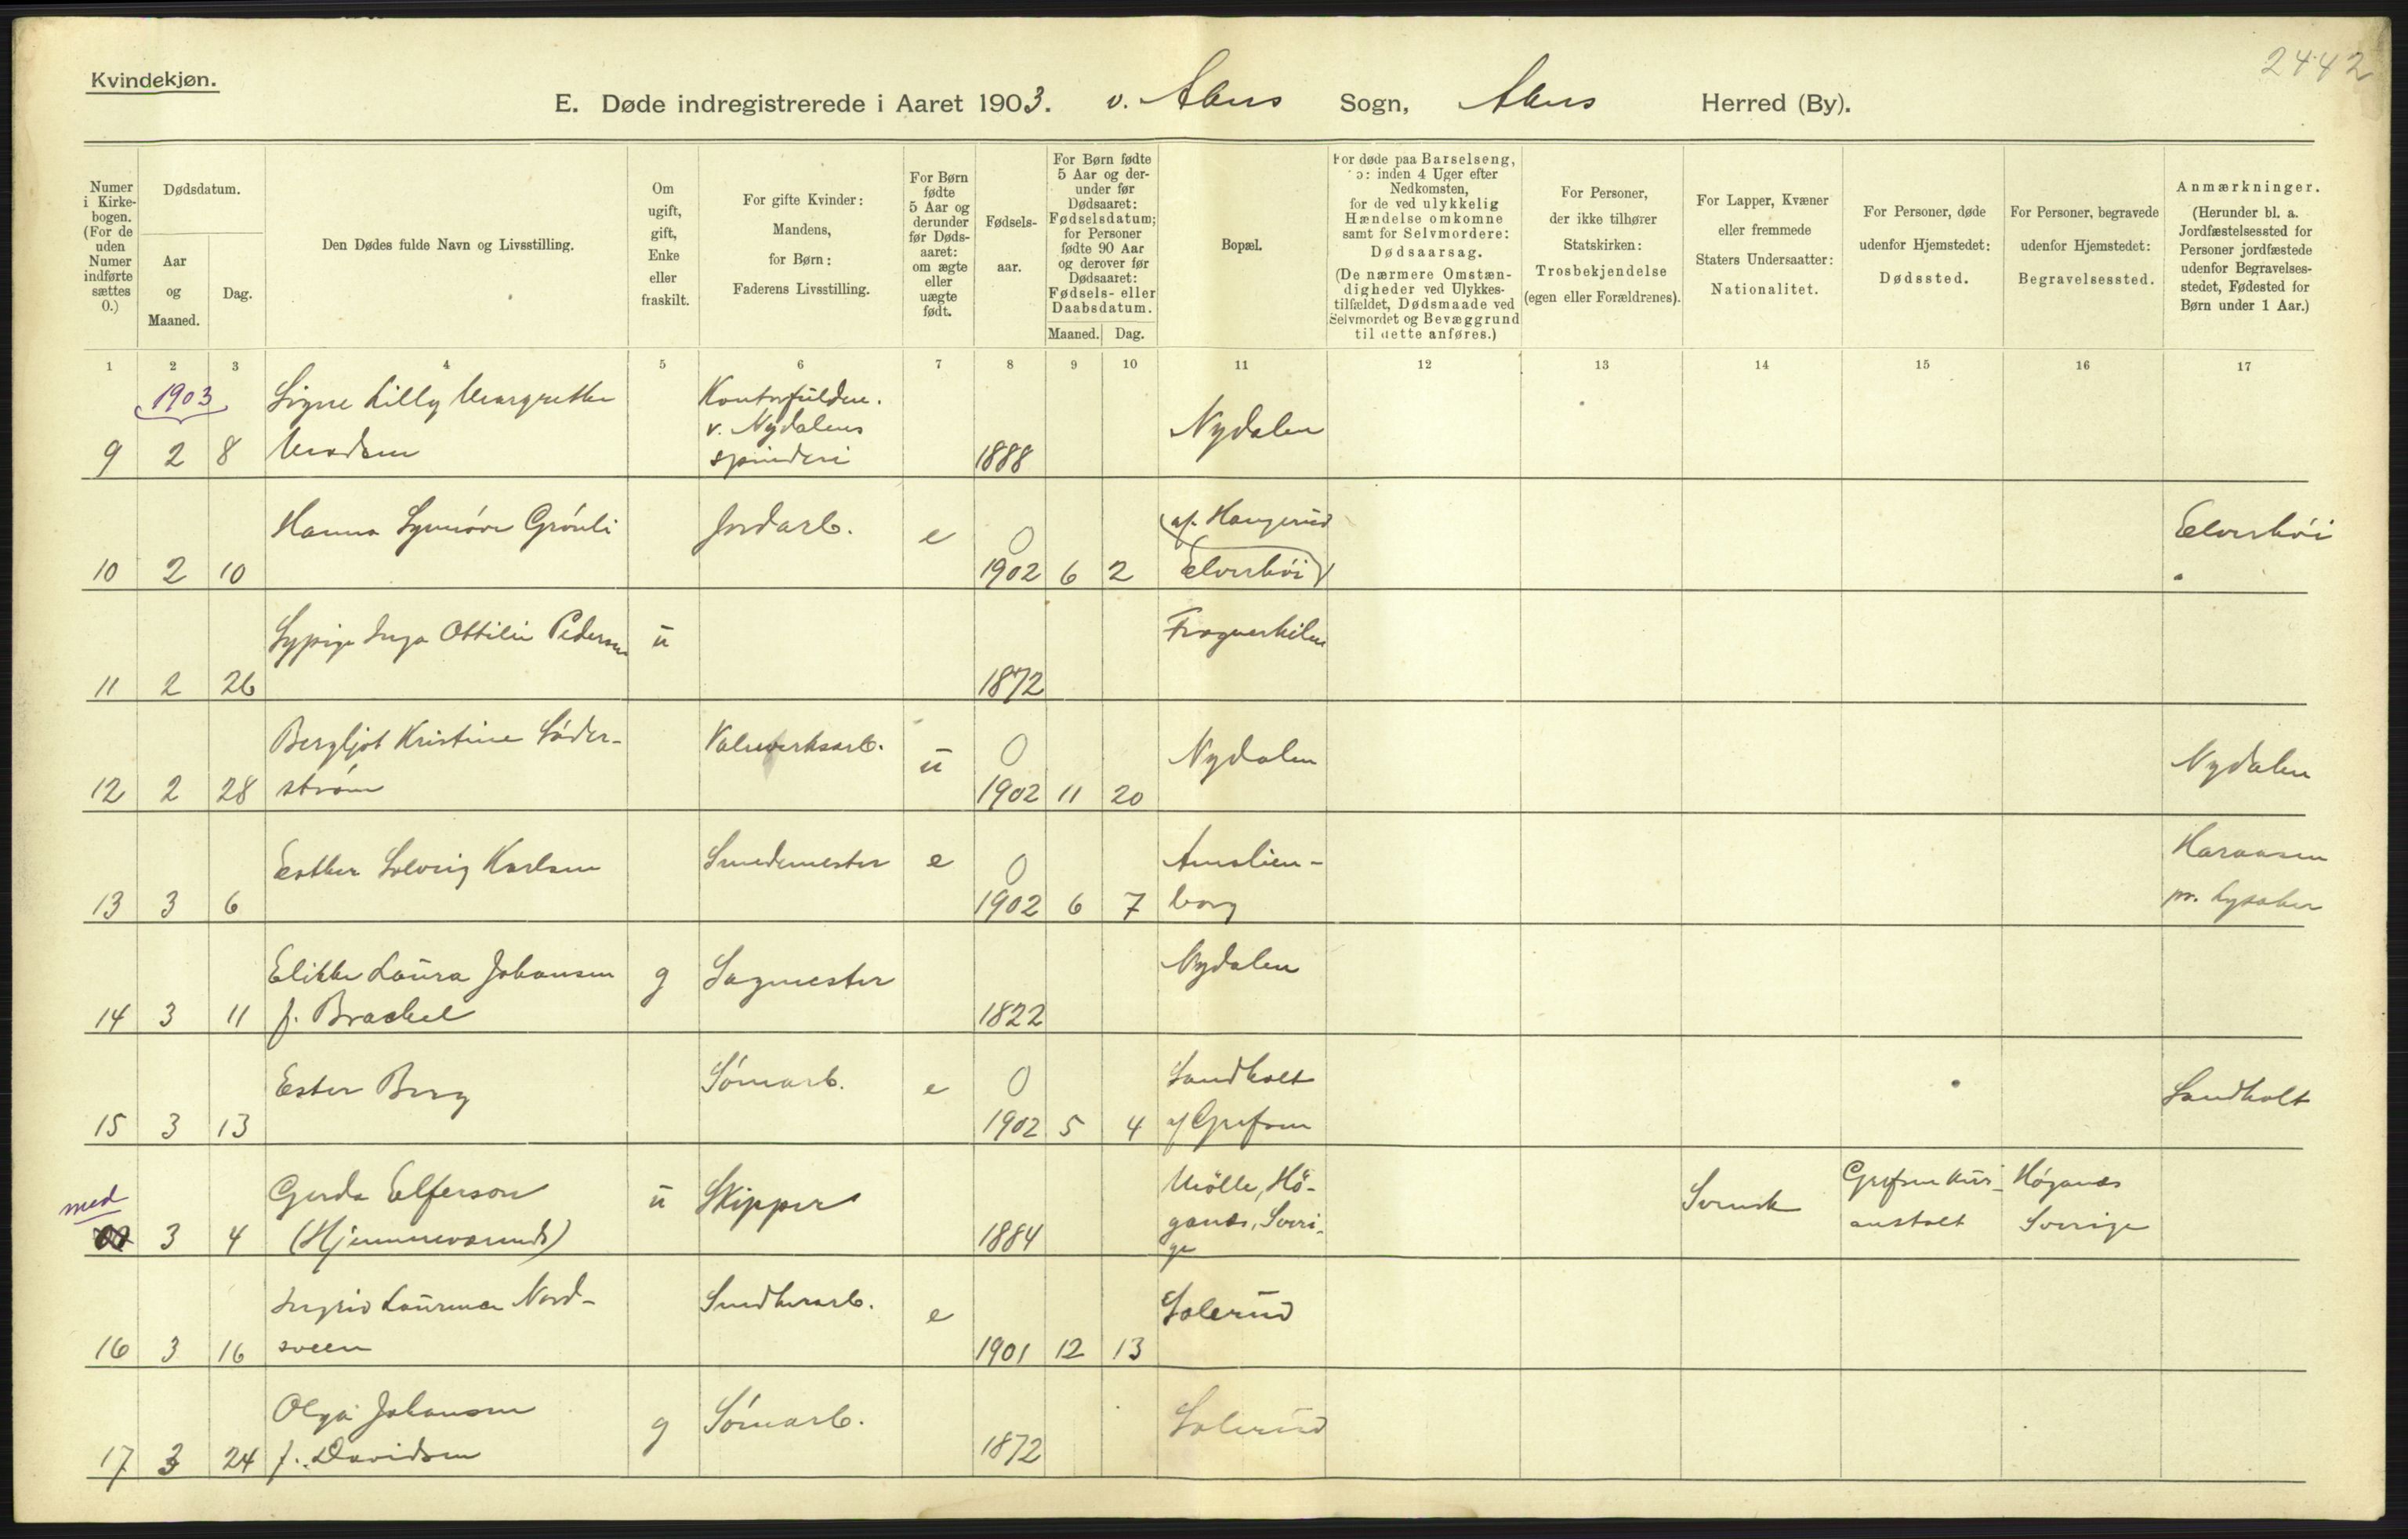 2442
Kvindekjøn.
E. Døde indregistrerede i Aaret 1903. v. Akers Sogn, Akers Herred (By).
Numer i Kirke-bogen. (For de uden Numer indførte sættes 0.)
Dødsdatum.
Aar og Maaned.
Dag.
Den Dødes fulde Navn og Livsstilling.
Om ugift, gift, Enke eller fraskilt.
For gifte Kvinder: Mandens, for Børn: Faderens Livsstilling.
For Børn fødte 5 Aar og derunder før Døds-aaret: om ægte eller uægte født.
Fødsels-aar.
For Børn fødte 5 Aar og der-under før Dødsaaret: Fødselsdatum; for Personer fødte 90 Aar og derover før Dødsaaret: Fødsels- eller Daabsdatum.
Maaned. Dag.
Bopæl.
For døde paa Barselseng, ɔ: inden 4 Uger efter Nedkomsten, for de ved ulykkelig Hændelse omkomne samt for Selvmordere: Dødsaarsag. (De nærmere Omstæn-digheder ved Ulykkes-tilfældet, Dødsmaade ved Selvmordet og Bevæggrund til dette anføres.)
For Personer, der ikke tilhører Statskirken: Trosbekjendelse (egen eller Forældrenes).
For Lapper, Kvæner eller fremmede Staters Undersaatter: Nationalitet.
For Personer, døde udenfor Hjemstedet: Dødssted.
For Personer, begravede udenfor Hjemstedet: Begravelsessted.
Anmærkninger. (Herunder bl. a. Jordfæstelsessted for Personer jordfæstede udenfor Begravelses-stedet, Fødested for Børn under 1 Aar.)
1 2 3 4 5 6 7 8 9 10 11 12 13 14 15 16 17
1903
Signe Lilly Margrethe Kontorfuldm.
v. Nydalens Nydalen
9 2 8 Madsen spinderi 1888
Hanna Synnöve Grönli Jordarb. e 0 af. Haugerud Elverhöi
10 2 10 1902 6 2 Elverhöi
Sypige Inga Ottilie Pedersen u Frognerkilen
11 2 26 1872
Bergljot Kristine Söder- Valseverksarb. u 0 Nydalen Nydalen
12 2 28 ström 1902 11 20
Esther Solveig Karlsen Smedemester e 0 Amalien- Haraasen
13 3 6 1902 6 7 borg pr. Lysaker
Elikke Laura Johansen g Sagmester Nydalen
14 3 11 f. Brackel 1822
Ester Berg Sömarb. e 0 Sandholt Sandholt
15 3 13 1902 5 4 af Grefsen
med Gerda Elferson u Skipper Mölle, Hö- Svensk Grefsen kur- Höganäs
3 4 (Hjemmeværende) 1884 ganäs, Sveri- anstalt Sverige
ge
Ingrid Laurense Nord- Snedkerarb. e Solerud
16 3 16 sveen 1901 12 13
Olga Johansen g Sömarb. Solerud
17 3 24 f. Davidsen 1872